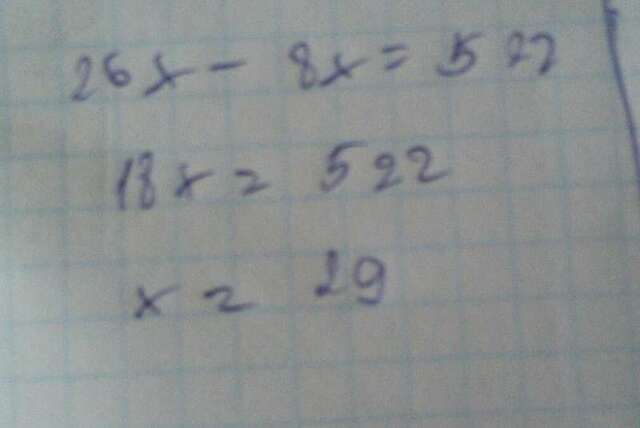 26x - 8x = 522
18x = 522
x = 29